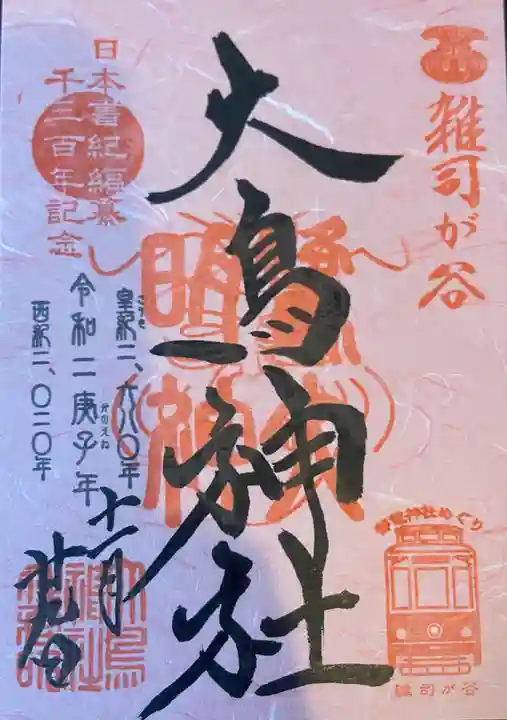 雑司が谷
大鳥神社
日本書紀編纂
千三百年記念
皇紀二、六八〇年
令和二庚子年
かのえね
西紀二、〇二〇年
十一月
神社めぐり
雑司が谷